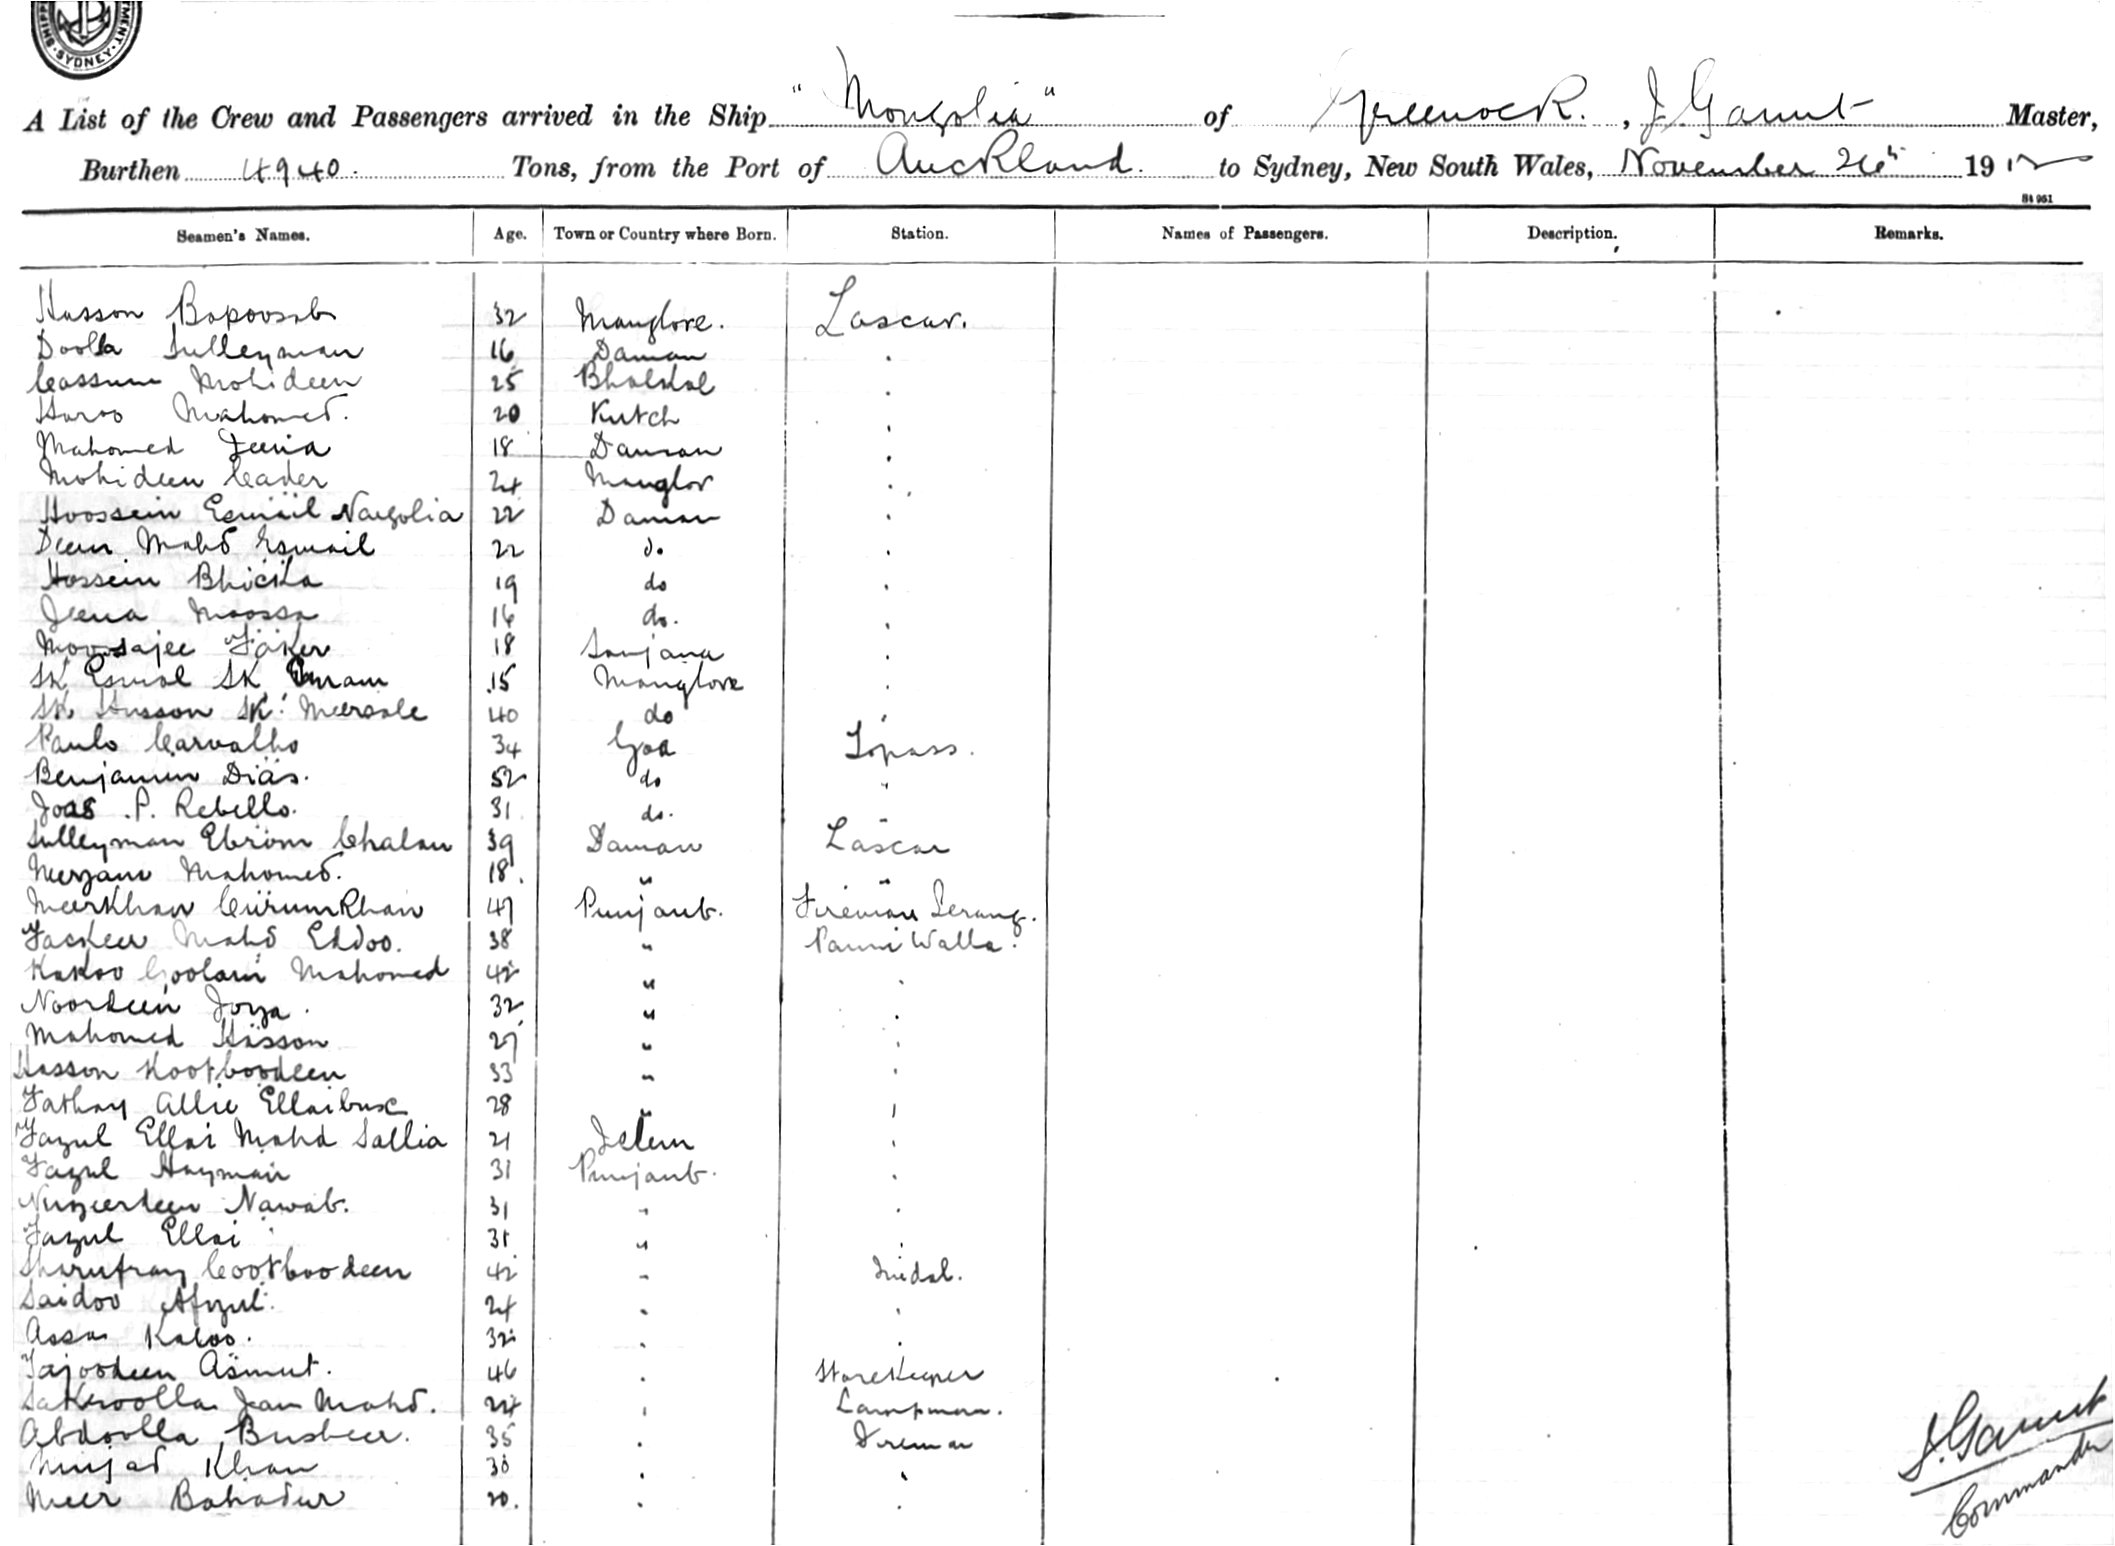 SHIPPING
SYDNEY
A List of the Crew and Passengers arrived in the Ship "Mongolia" of Greenock, J. Gaunt Master,
Burthen 4940. Tons, from the Port of Auckland. to Sydney, New South Wales, November 26th 1912
84 951
Seamen's Names. Age. Town or Country where Born. Station. Names of Passengers. Description. Remarks.
Hasson Bapoosab 32 Manglore. Lascar.
Doolla Sulleyman 16 Daman "
Cassum Mohideen 25 Bhatkal "
Haroo Mahomed. 20 Kutch "
Mahomed Jeena 18 Daman "
Mohideen Cader 24 Manglor "
Hoossein Esmail Nargolia 22 Daman "
Deen Mahd Esmail 22 do "
Hossein Bhicka 19 do "
Jeena Moossa 16 do. "
Moosajee Faker 18 Sanjana "
SK Esmal SK Emam 15 Manglore "
SK Husson SK. Meersale 40 do "
Paulo Carvalho 34 Goa Topass.
Benjamin Dias. 52 do "
Joas P. Rebello. 31 do. "
Sulleyman Ebram Chalan 39 Daman Lascar
Meryam Mahomed. 18. " "
MeerKhan CurumKhan 47 Punjaub. Fireman Serang.
Fackeer Mahd Eddoo. 38 " Panni Walla.
Kakoo Goolam Mahomed 42 " "
Noordeen Joya. 32 " "
Mahomed Hasson 27 " "
Hasson Kootboodeen 33 " "
Fathay Allie Ellaibux 28 " "
Fazul Ellai Mahd Sallia 21 Jelum "
Fazul Hayman 31 Punjaub. "
Nuzeerdeen Nawab. 31 " "
Fazul Ellai 31 " "
Cootboodeen 42 " Tindal.
Saidoo Afzul. 24 " "
Assa Kaloo. 32 " "
Tajoodeen Asmut. 46 " StoreKeeper
Sakroolla Jan Mahd. 24 " Lampman.
Abdoolla Busheer. 35 " Fireman
Khan 30 " "
Meer Bahadur 20. " "
J. Gaunt
Commander